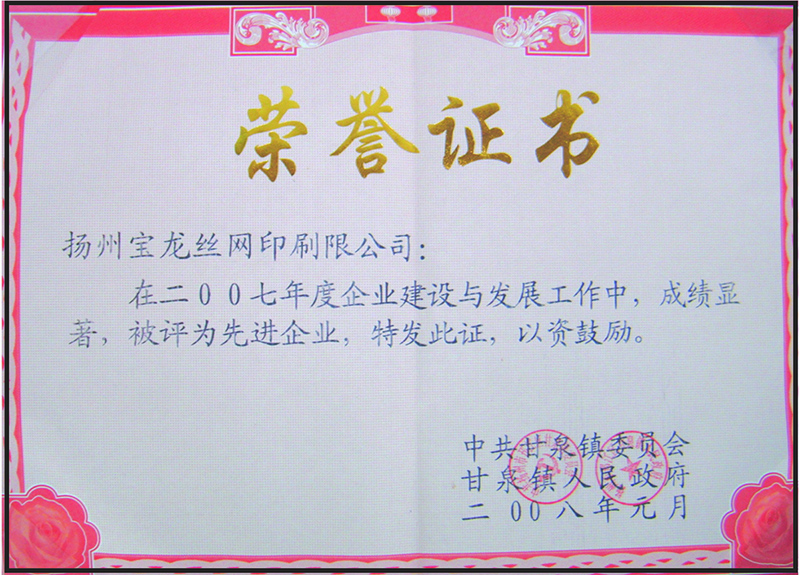 荣誉证书
扬州宝龙丝网印刷限公司：
在二00七年度企业建设与发展工作中，成绩显
著，被评为先进企业，特发此证，以资鼓励。
中共甘泉镇委员会
甘泉镇人民政府
二00八年元月